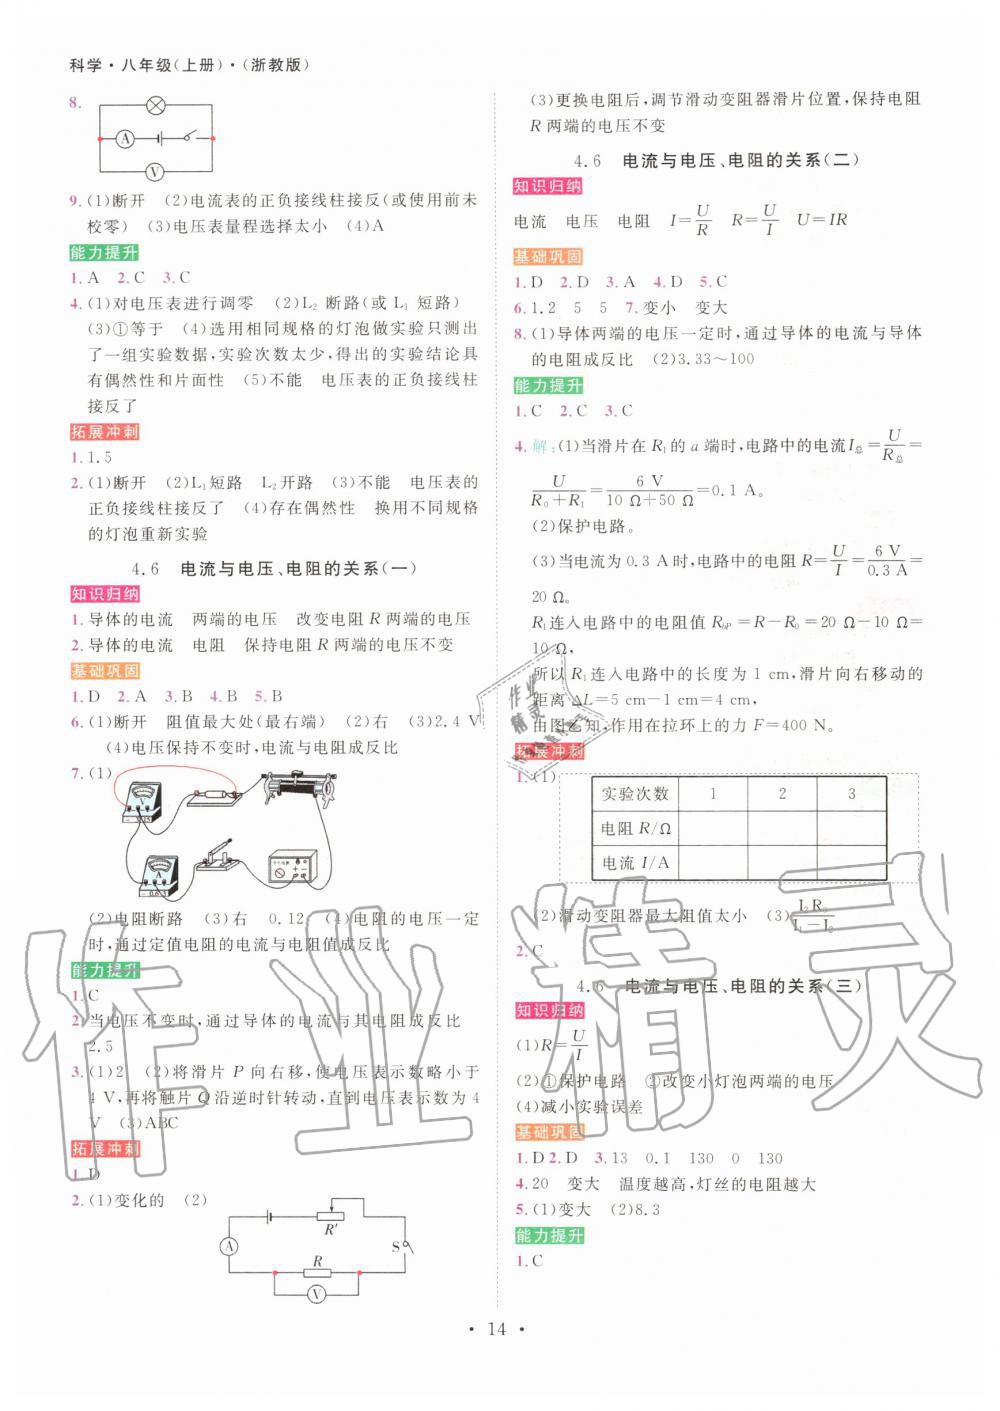 科学·八年级(上册)·(浙教版)
8.
A
V
9.(1)断开 (2)电流表的正负接线柱接反(或使用前未
校零) (3)电压表量程选择太小 (4)A
能力提升
1.A 2.C 3.C
4.(1)对电压表进行调零 (2)L₂ 断路(或 L₁ 短路)
(3)①等于 (4)选用相同规格的灯泡做实验只测出
了一组实验数据,实验次数太少,得出的实验结论具
有偶然性和片面性 (5)不能 电压表的正负接线柱
接反了
拓展冲刺
1.1.5
2.(1)断开 (2)L₁短路 L₂开路 (3)不能 电压表的
正负接线柱接反了 (4)存在偶然性 换用不同规格
的灯泡重新实验
4.6 电流与电压、电阻的关系(一)
知识归纳
1.导体的电流 两端的电压 改变电阻 R 两端的电压
2.导体的电流 电阻 保持电阻 R 两端的电压不变
基础巩固
1.D 2.A 3.B 4.B 5.B
6.(1)断开 阻值最大处(最右端) (2)右 (3)2.4 V
(4)电压保持不变时,电流与电阻成反比
7.(1)
(2)电阻断路 (3)右 0.12 (4)电阻的电压一定
时,通过定值电阻的电流与电阻值成反比
能力提升
1.C
2.当电压不变时,通过导体的电流与其电阻成反比
2.5
3.(1)2 (2)将滑片 P 向右移,使电压表示数略小于
4 V,再将触片 Q 沿逆时针转动,直到电压表示数为 4
V (3)ABC
拓展冲刺
1.D
2.(1)变化的 (2)
R′
A
S
R
V
(3)更换电阻后,调节滑动变阻器滑片位置,保持电阻
R 两端的电压不变
4.6 电流与电压、电阻的关系(二)
知识归纳
电流 电压 电阻 I=U/R R=U/I U=IR
基础巩固
1.D 2.D 3.A 4.D 5.C
6.1.2 5 5 7.变小 变大
8.(1)导体两端的电压一定时,通过导体的电流与导体
的电阻成反比 (2)3.33~100
能力提升
1.C 2.C 3.C
4.解:(1)当滑片在 R₁ 的 a 端时,电路中的电流 I总=U/R总=
U/(R₀+R₁)=6 V/(10 Ω+50 Ω)=0.1 A。
(2)保护电路。
(3)当电流为 0.3 A 时,电路中的电阻 R=U/I=6 V/0.3 A=
20 Ω。
R₁连入电路中的电阻值 R_bP=R-R₀=20 Ω-10 Ω=
10 Ω,
所以 R₁连入电路中的长度为 1 cm,滑片向右移动的
距离 ΔL=5 cm-1 cm=4 cm,
由图乙知,作用在拉环上的力 F=400 N。
拓展冲刺
1.(1)
实验次数 1 2 3
电阻 R/Ω
电流 I/A
(2)滑动变阻器最大阻值太小 (3)I₂R₀/(I₁-I₂)
2.C
4.6 电流与电压、电阻的关系(三)
知识归纳
(1)R=U/I
(2)①保护电路 ②改变小灯泡两端的电压
(4)减小实验误差
基础巩固
1.D 2.D 3.13 0.1 130 0 130
4.20 变大 温度越高,灯丝的电阻越大
5.(1)变大 (2)8.3
能力提升
1.C
·14·
作业精灵